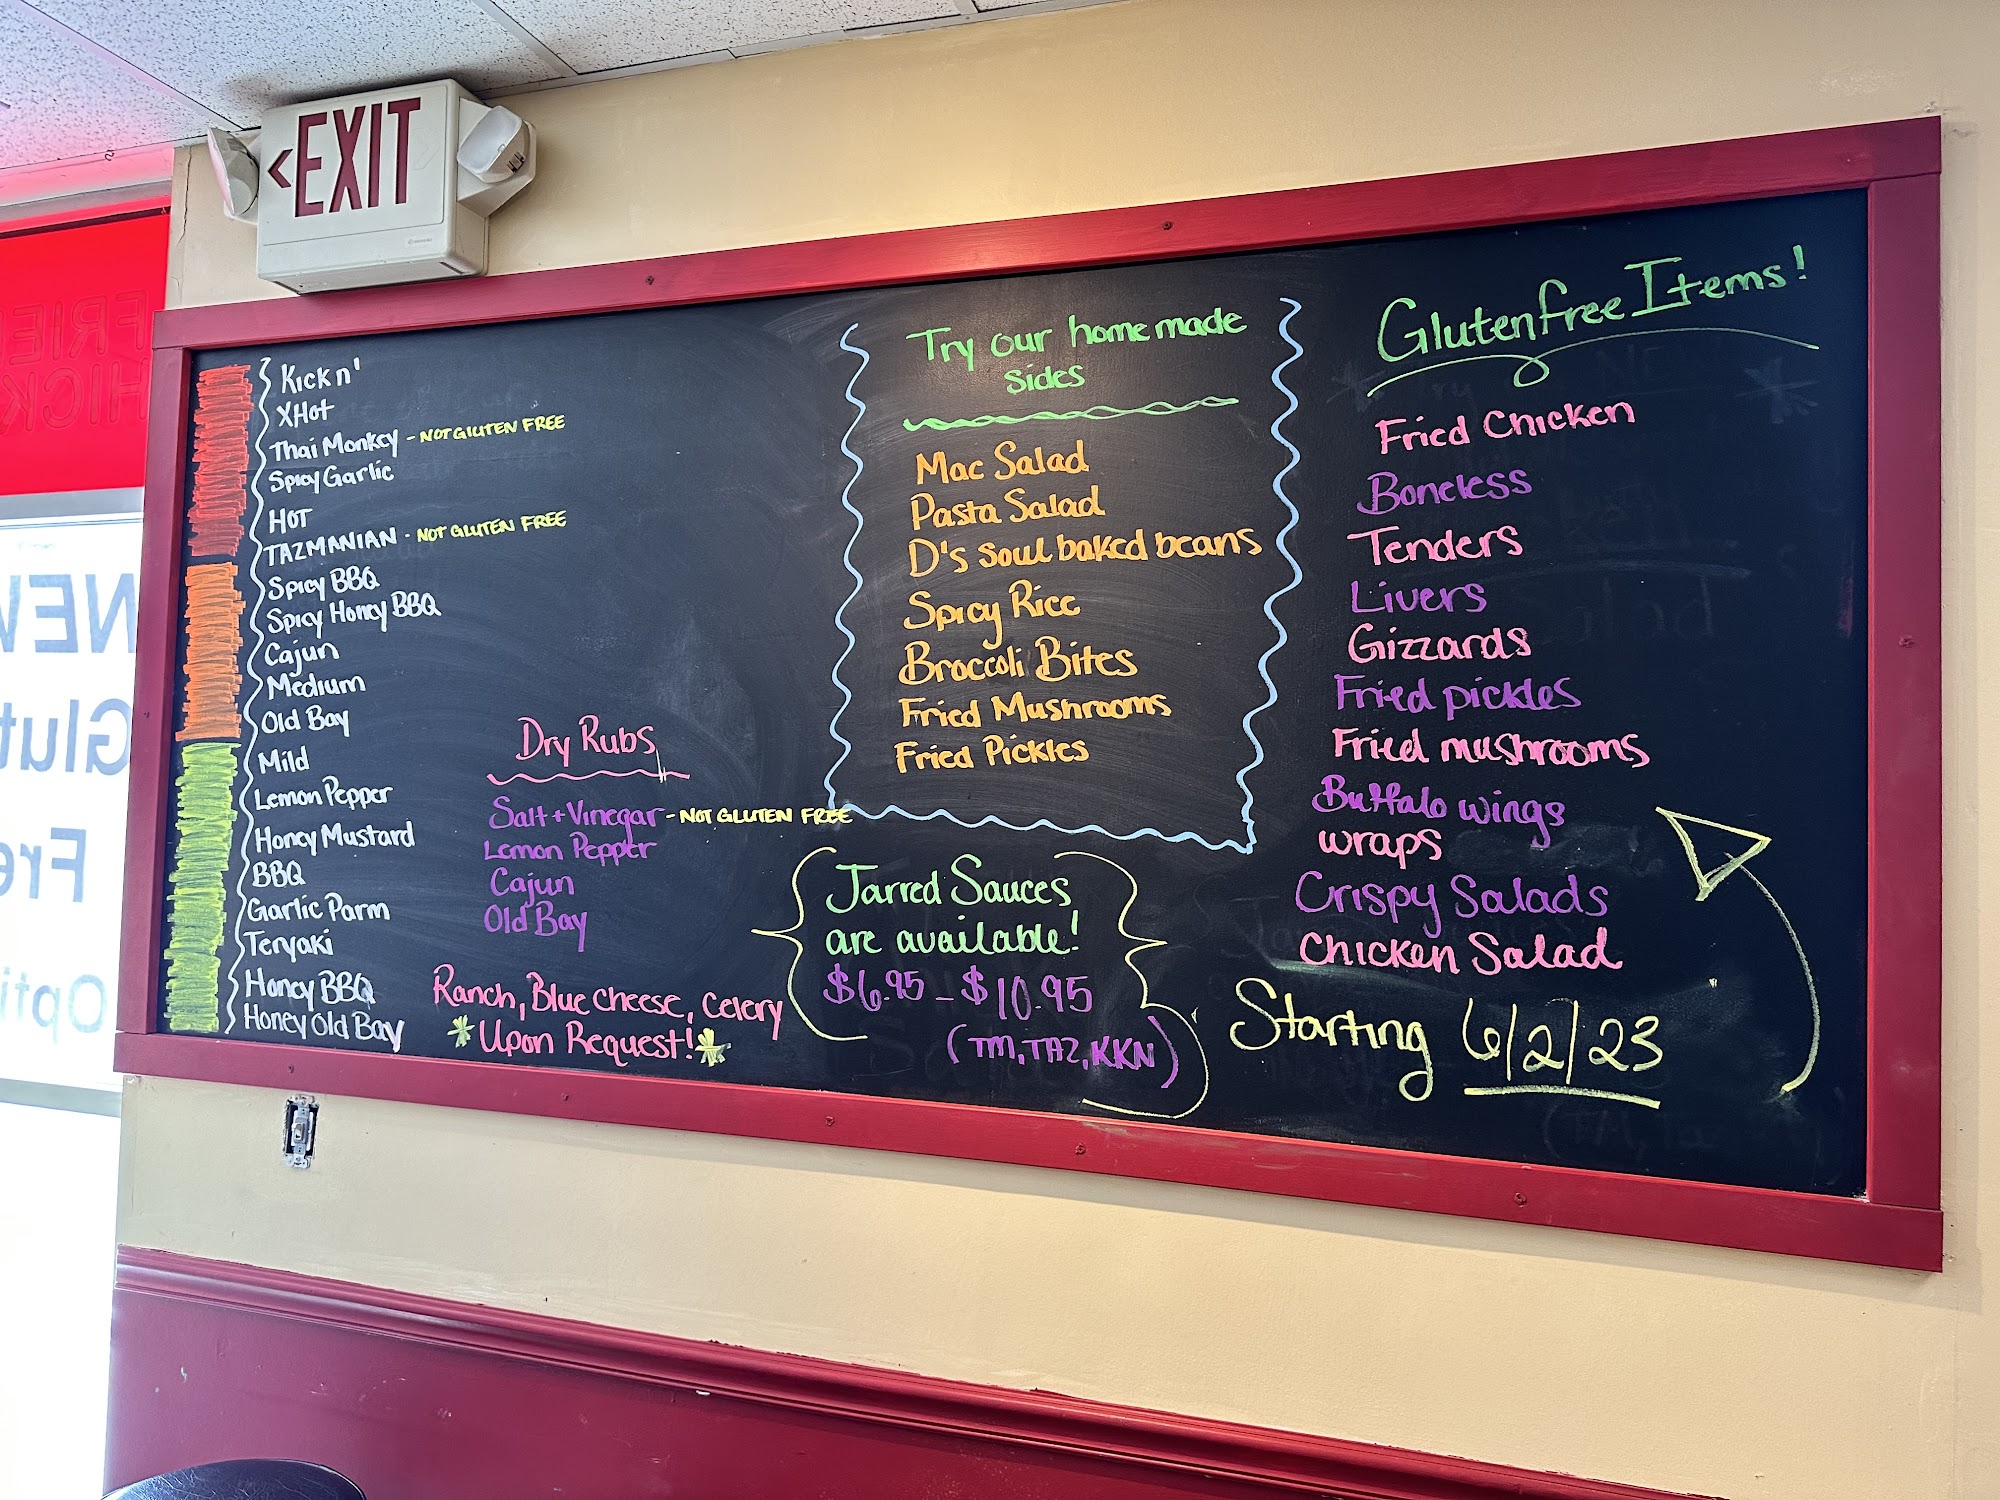 <EXIT
Kickn'
XHot
Thai Monkey - NOT GLUTEN FREE
Spicy Garlic
HOT
TAZMANIAN - NOT GLUTEN FREE
Spicy BBQ
Spicy Honey BBQ
Cajun
Medium
Old Bay
Mild
Lemon Pepper
Honey Mustard
BBQ
Garlic Parm
Teryaki
Honey BBQ
Honey Old Bay
Dry Rubs
Salt + Vinegar - NOT GLUTEN FREE
Lemon Pepper
Cajun
Old Bay
Ranch, Blue cheese, celery
*Upon Request!*
Try our homemade
sides
Mac Salad
Pasta Salad
D's soul baked beans
Spicy Rice
Broccoli Bites
Fried Mushrooms
Fried Pickles
Jarred Sauces
are available!
$6.95 - $10.95
(TM, TAZ, KKN)
Gluten free Items!
Fried Chicken
Boneless
Tenders
Livers
Gizzards
Fried pickles
Fried mushrooms
Buffalo wings
wraps
Crispy Salads
Chicken Salad
Starting 6/2/23
NEW
Glut
Fre
Opti
FRIE
HICK